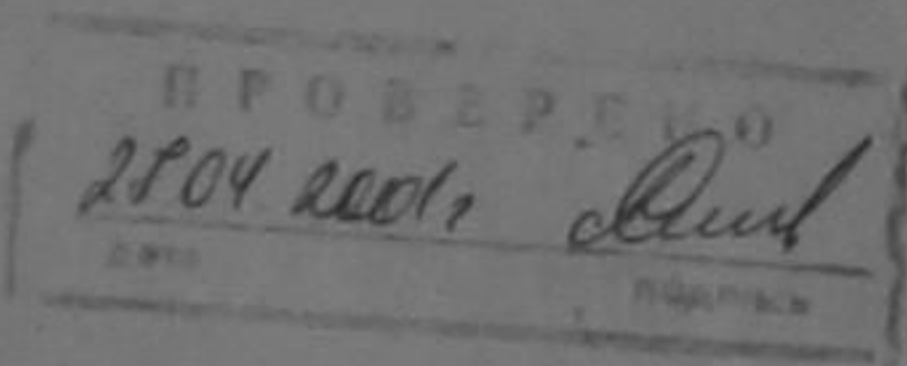 ПРОВЕРЕНО
28 04 2001г
дата подпись